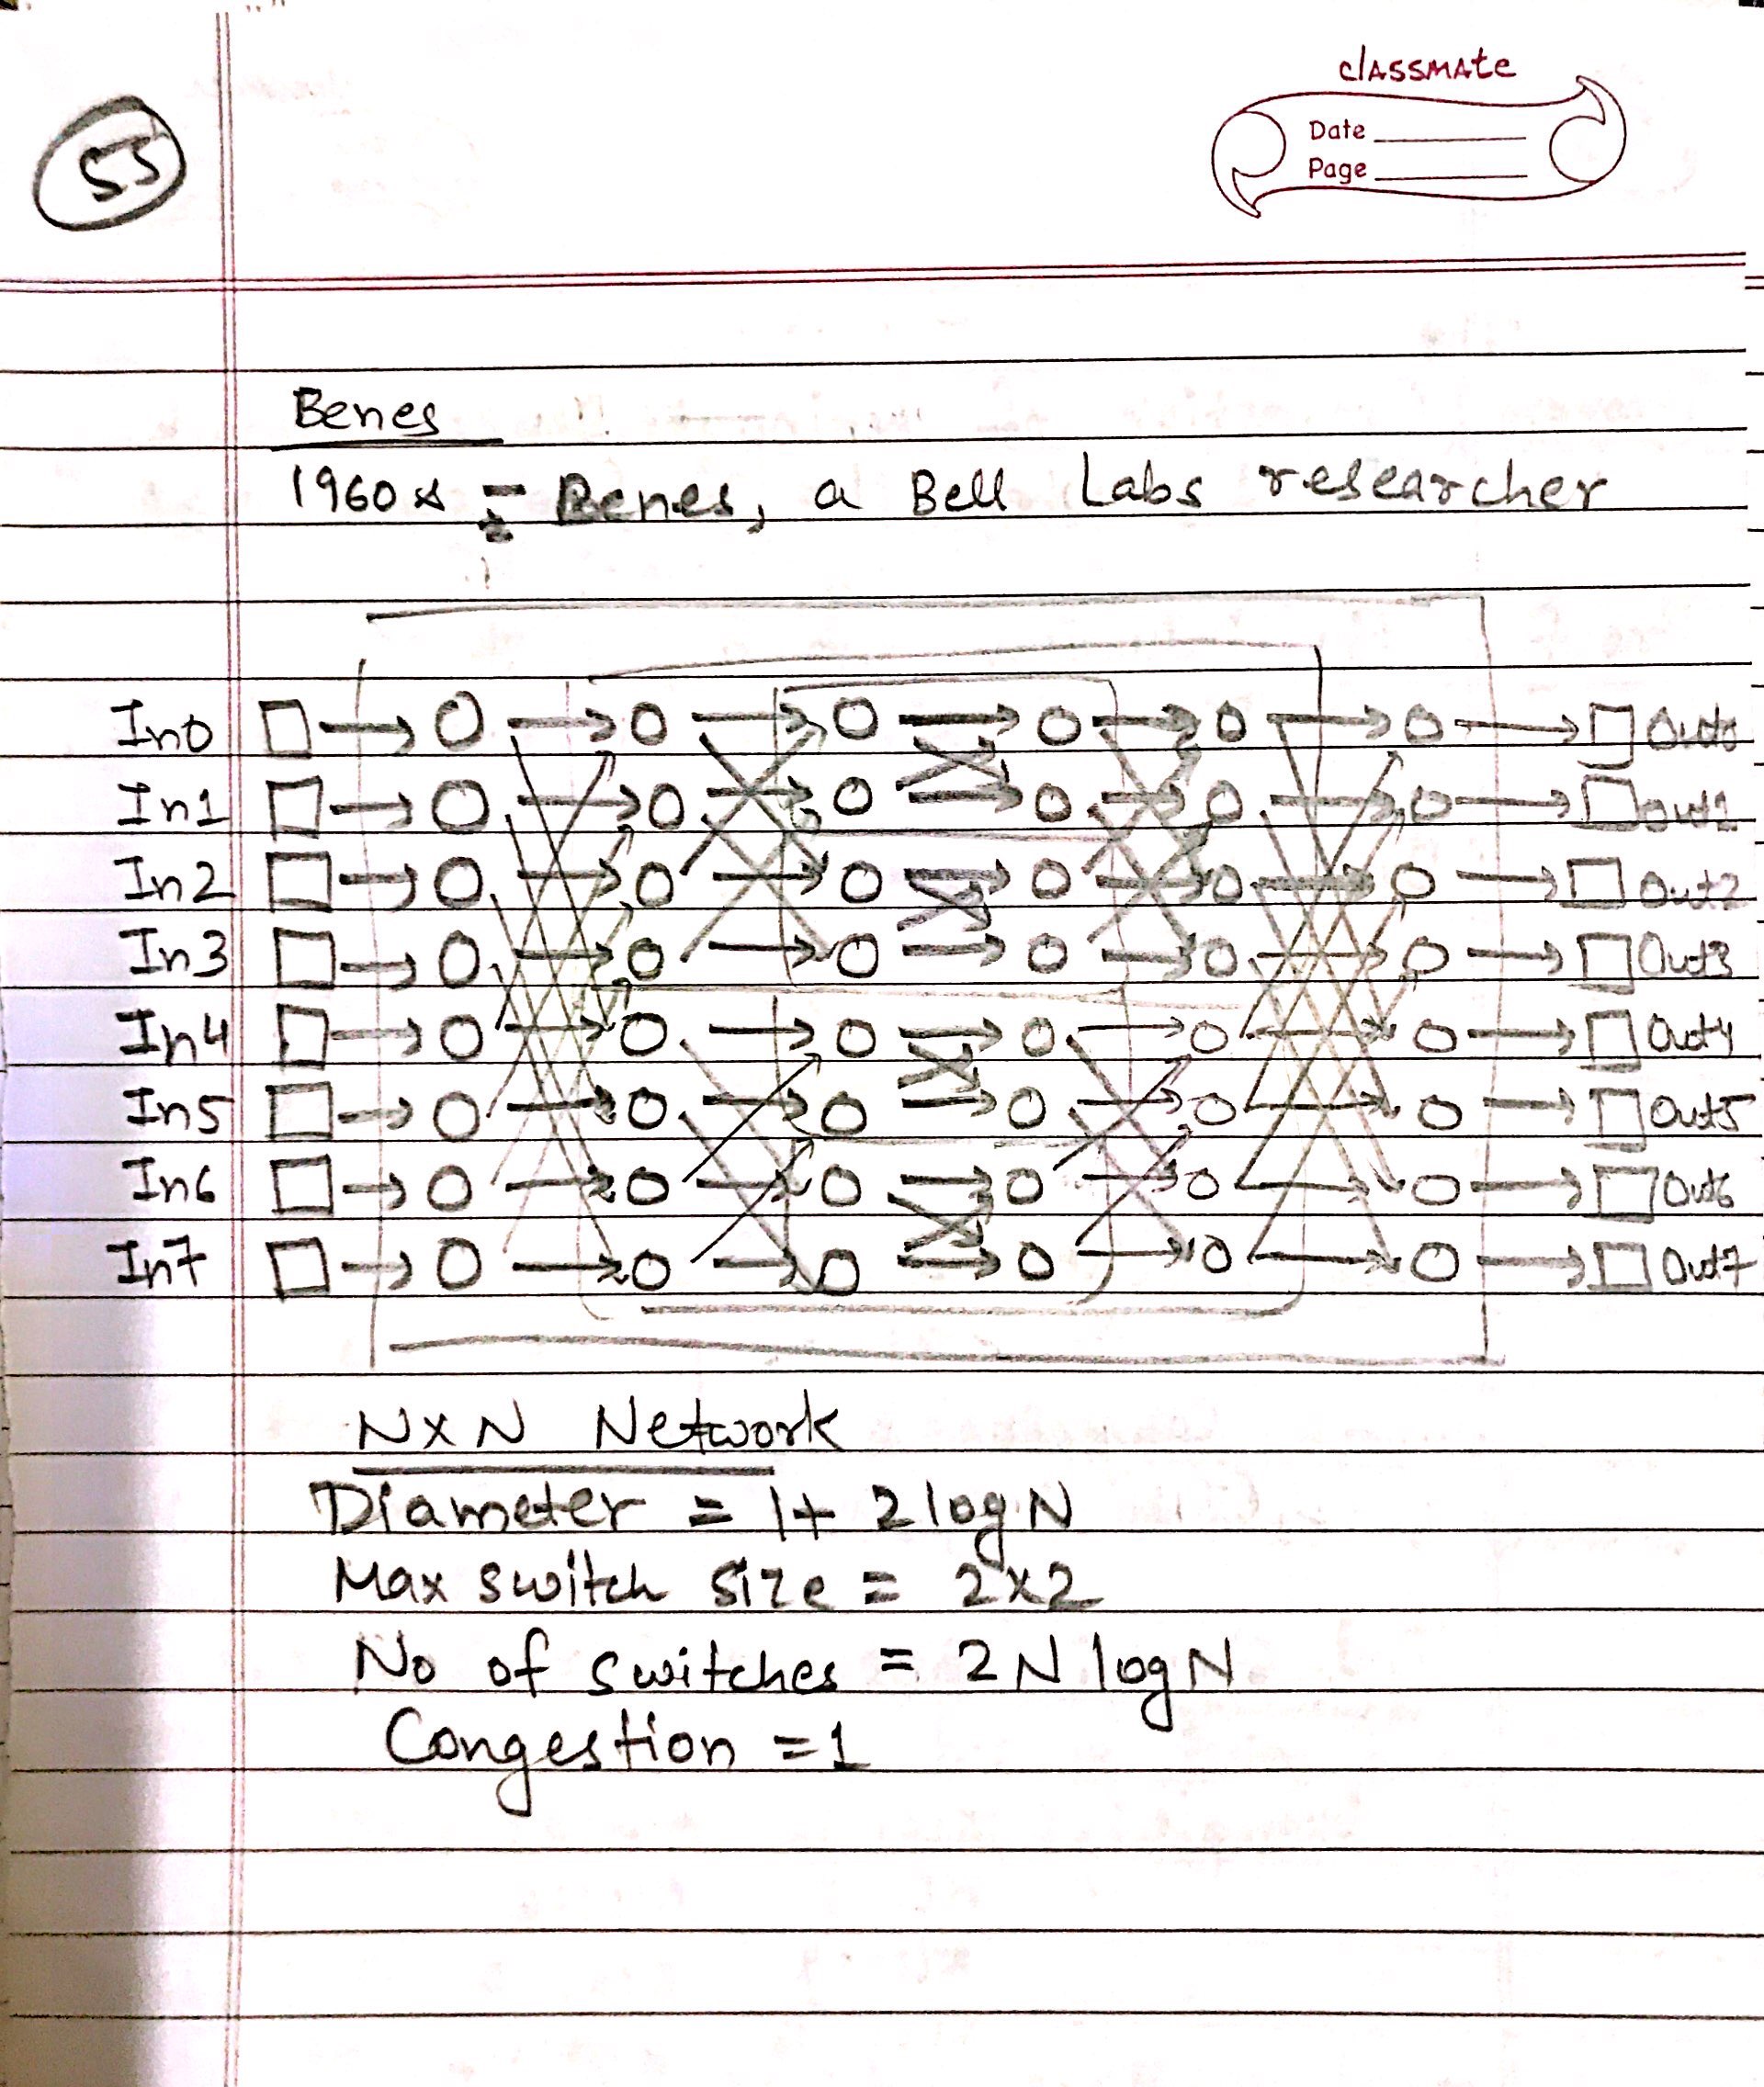 classmate
Date
Page
55
Benes
1960s - Benes, a Bell Labs researcher
In0 Out0
In1 Out1
In2 Out2
In3 Out3
In4 Out4
In5 Out5
In6 Out6
In7 Out7
NXN Network
Diameter = 1+ 2logN
Max switch size = 2x2
No of switches = 2NlogN
Congestion = 1